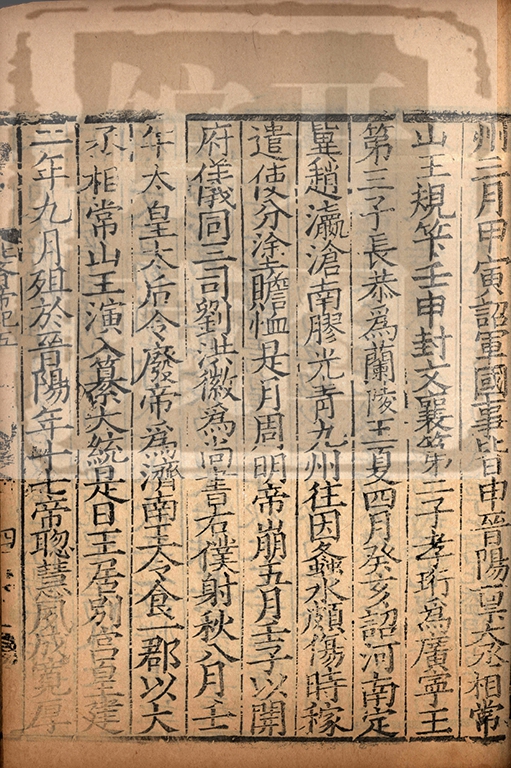 州三月甲寅詔軍國事皆申晉陽稟大丞相常
山王規筭壬申封文襄第二子孝珩爲廣寧王
第三子長恭爲蘭陵王夏四月癸亥詔河南定
冀趙瀛滄南膠光青九州往因螽水頗傷時稼
遣使分塗贍恤是月周明帝崩五月壬子以開
府儀同三司劉洪徽爲尚書右僕射秋八月壬
午太皇太后令廢帝爲濟南王令食一郡以大
丞相常山王演入纂大統是日王居別宮皇建
二年九月殂於晉陽年十七帝聰慧夙成寬厚
四